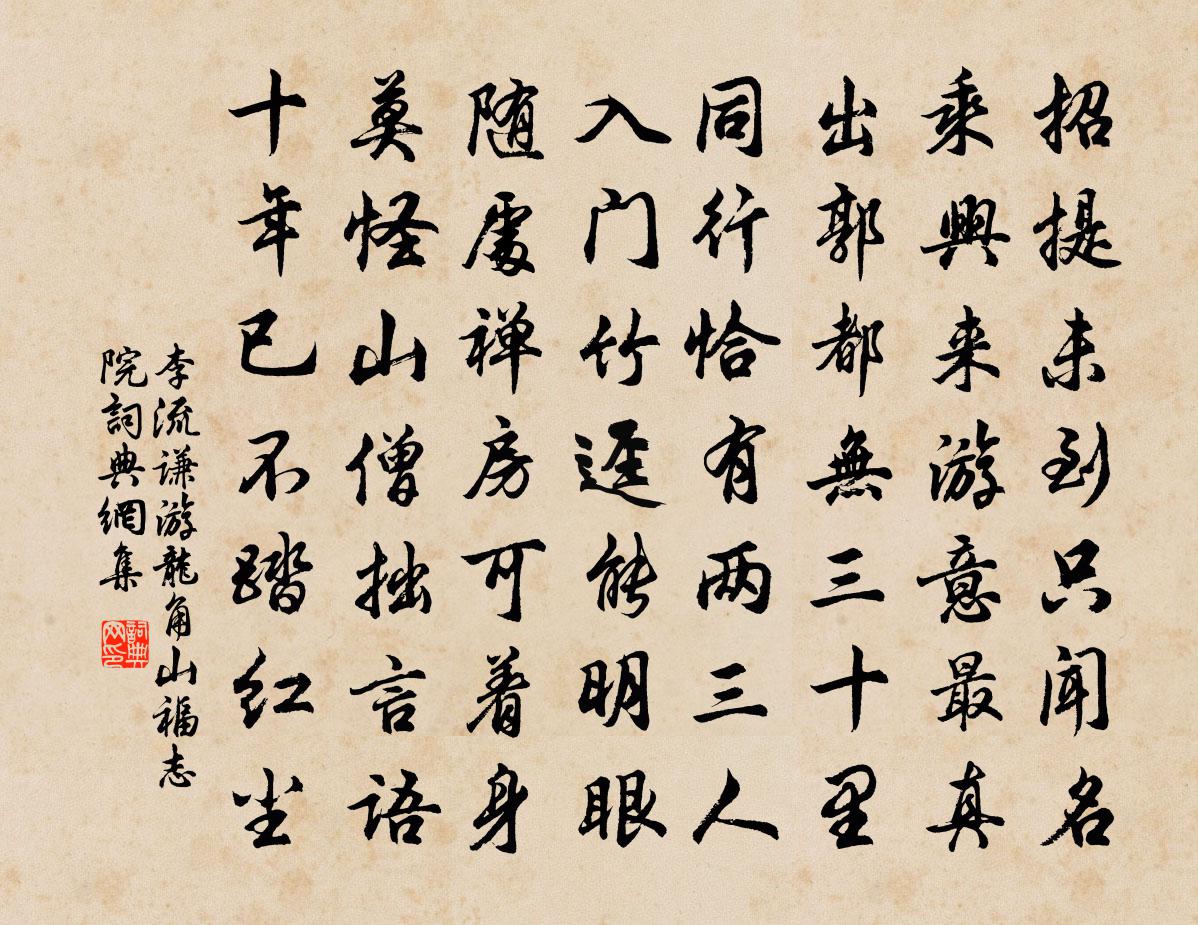 招提未到只闻名
乘興来游意最真
出郭都無三十里
同行恰有两三人
入门竹迳能明眼
随處禅房可着身
莫怪山僧拙言语
十年已不踏红尘
李流谦游龍角山福志
院詞典網集
詞典网印